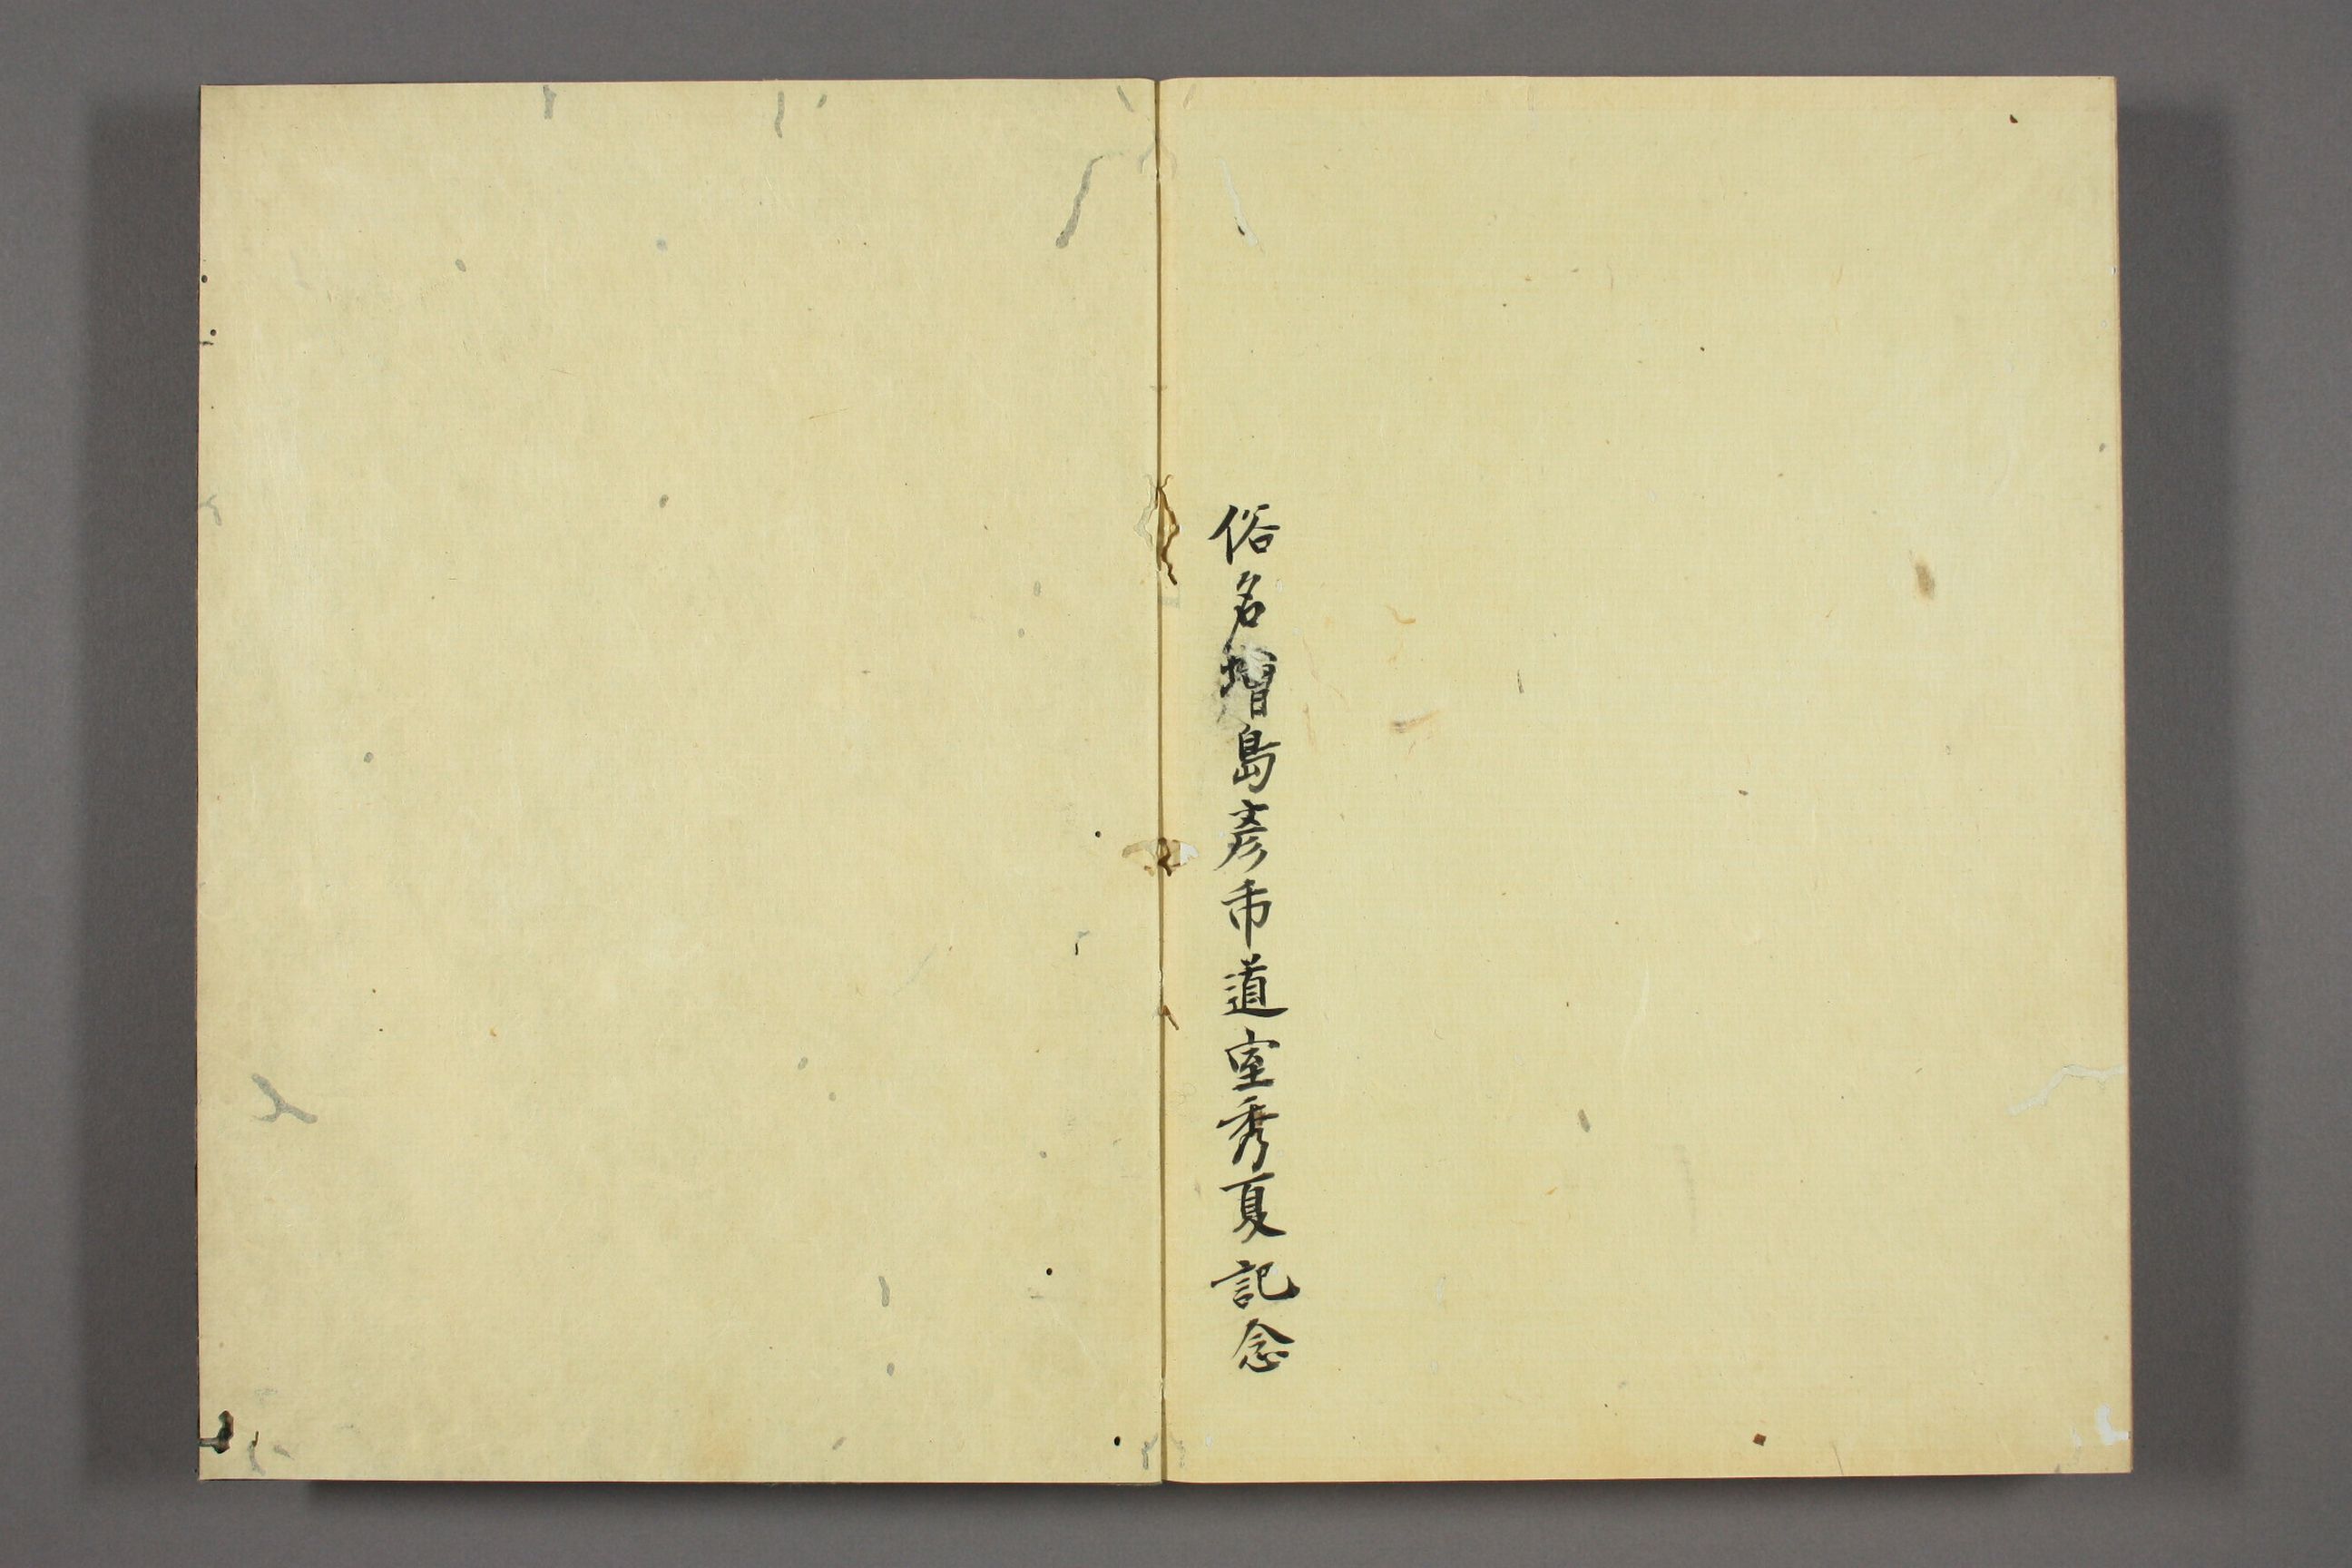 俗名增島彥市道室秀夏記念